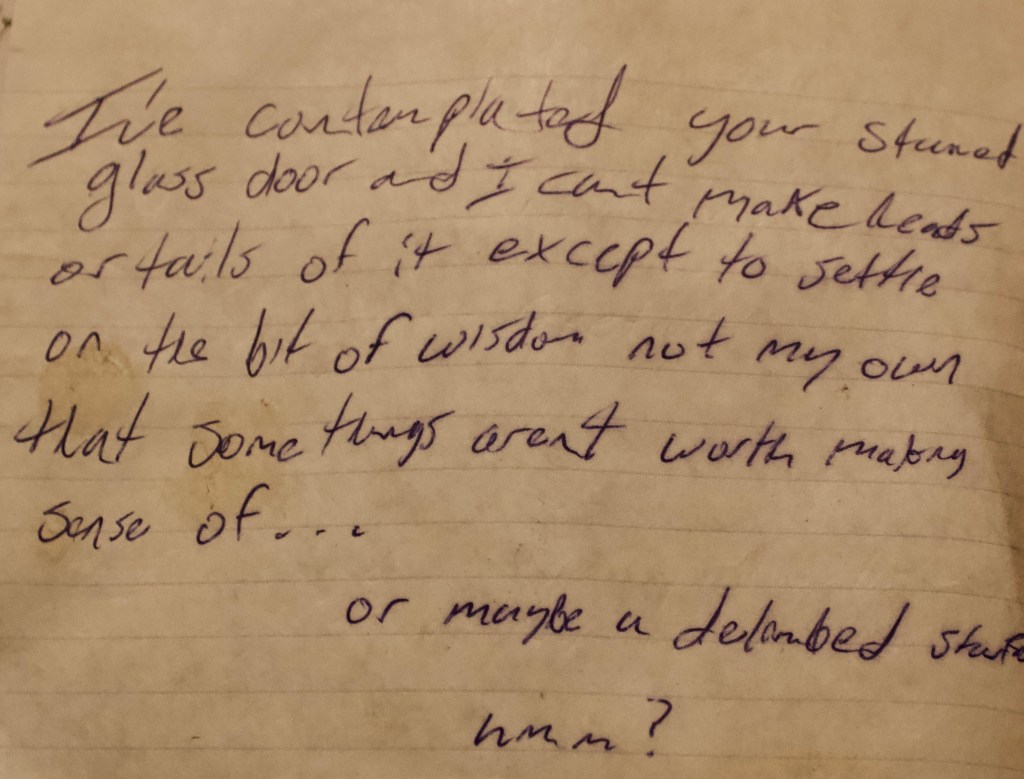 I've contemplated your stained
glass door and I cant make heads
or tails of it except to settle
on the bit of wisdom not my own
that some things arent worth making
sense of...
or maybe a delimbed
hmm?